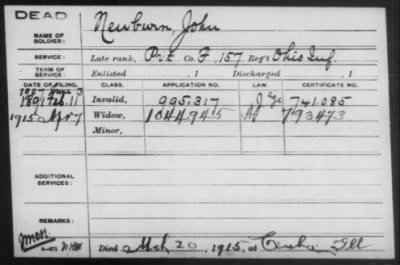 DEAD
Newburn, John
NAME OF
SOLDIER:
SERVICE: Late rank, Pvt Co. F, 157 Reg't Ohio Inf.
TERM OF
SERVICE: Enlisted , 1 Discharged , 1
DATE OF FILING. CLASS. APPLICATION NO. LAW. CERTIFICATE NO.
1891 Feb. 11 Invalid, 995.317 741.085
1915 Apr 7 Widow, 1044945 793473
Minor,
ADDITIONAL
SERVICES:
REMARKS:
Died Mch 20, 1915, at Ill